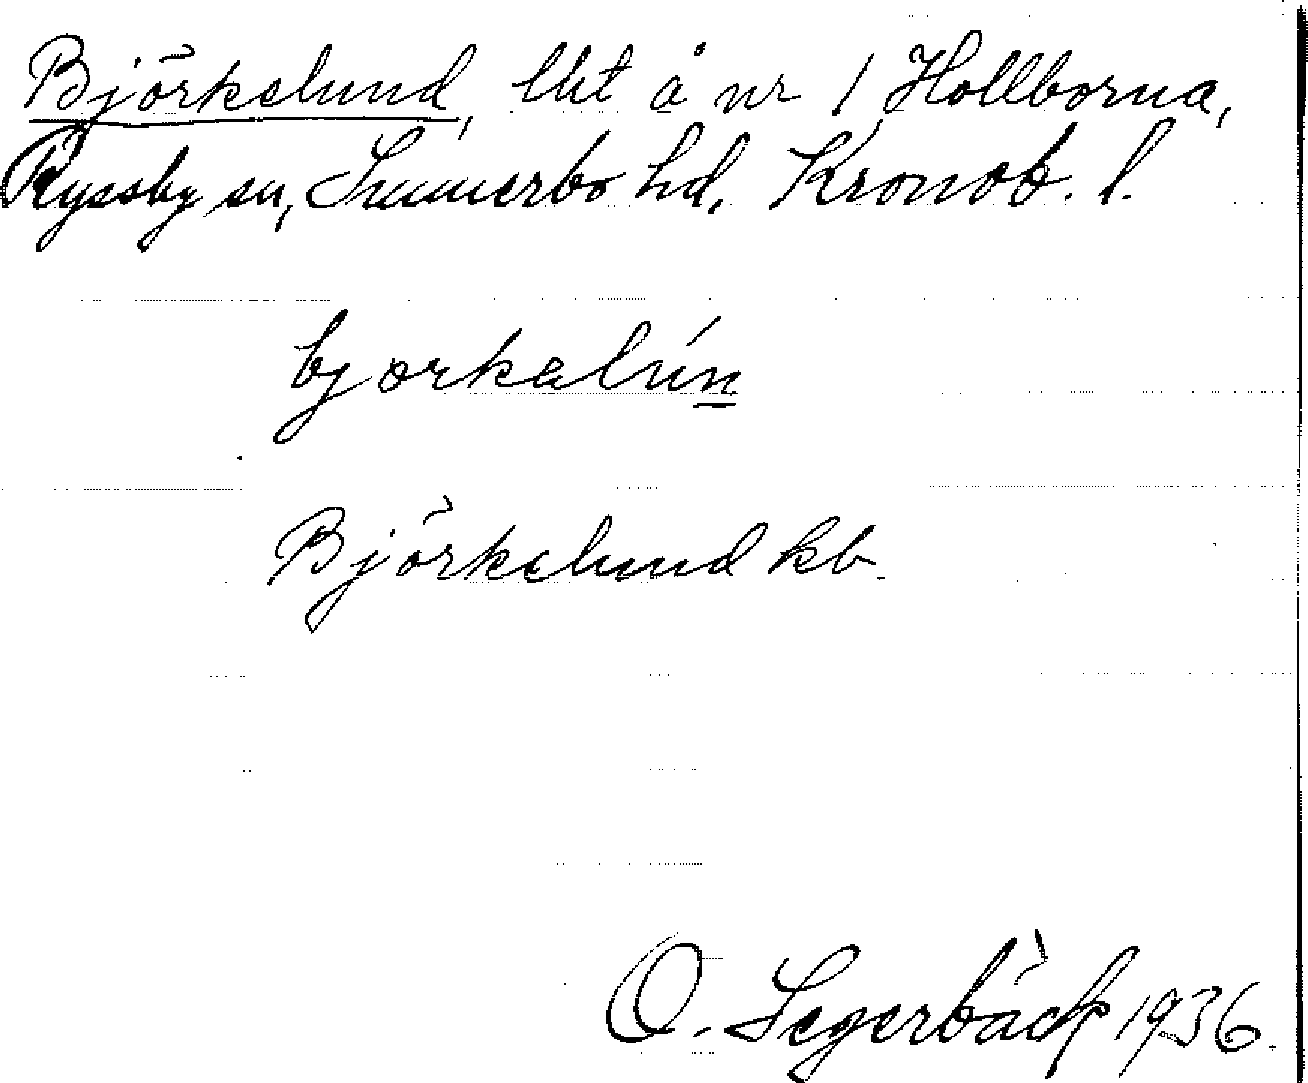 Björkelund, lht å nr 1 Hollborna,
Ryssby sn, Sunnerbo hd, Kronob. l.
bjorkalún
Björkelund kb.
O. Segerbäck 1936.